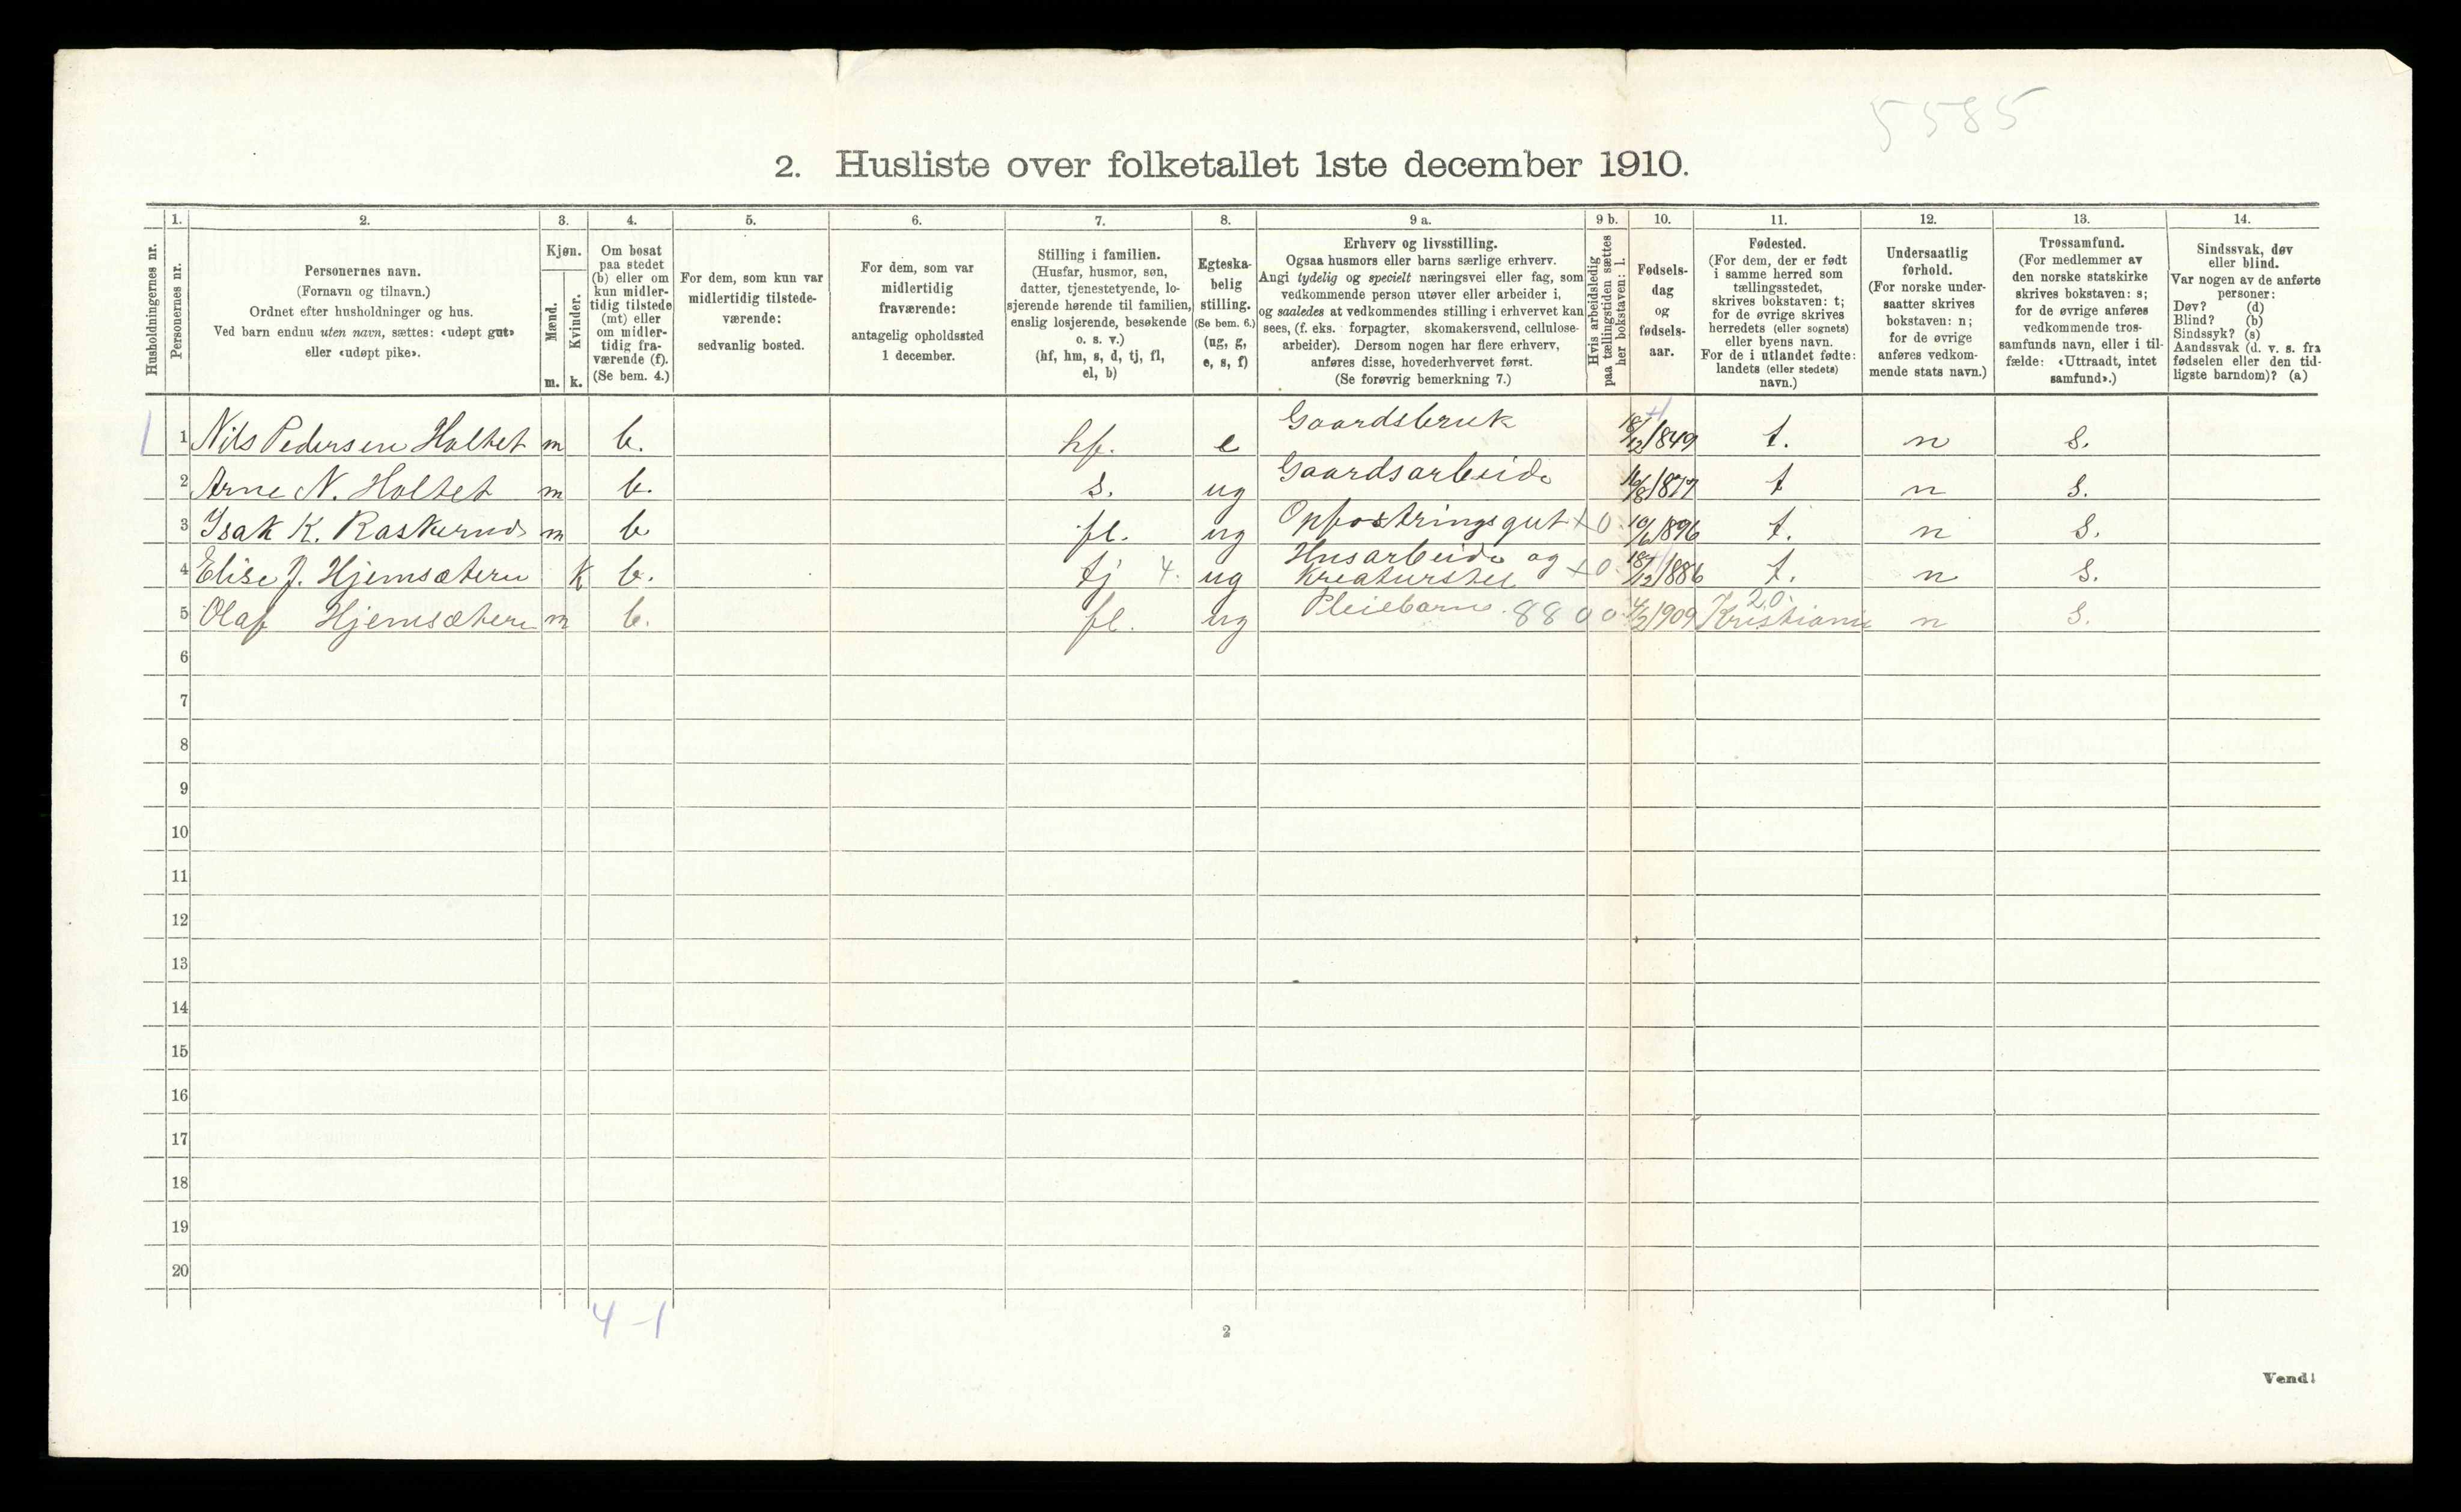 5585
2. Husliste over folketallet 1ste december 1910.
Husholdningernes nr.
1.
Personernes nr.
2.
Personernes navn.
(Fornavn og tilnavn.)
Ordnet efter husholdninger og hus.
Ved barn endnu uten navn, sættes: «udøpt gut»
eller «udøpt pike».
3.
Kjøn.
Mænd.
Kvinder.
m. k.
4.
Om bosat
paa stedet
(b) eller om
kun midler-
tidig tilstede
(mt) eller
om midler-
tidig fra-
værende (f).
(Se bem. 4.)
5.
For dem, som kun var
midlertidig tilstede-
værende:
sedvanlig bosted.
6.
For dem, som var
midlertidig
fraværende:
antagelig opholdssted
1 december.
7.
Stilling i familien.
(Husfar, husmor, søn,
datter, tjenestetyende, lo-
sjerende hørende til familien,
enslig losjerende, besøkende
o. s. v.)
(hf, hm, s, d, tj, fl,
el, b)
8.
Egteska-
belig
stilling.
(Se bem. 6.)
(ug, g,
e, s, f)
9 a.
Erhverv og livsstilling.
Ogsaa husmors eller barns særlige erhverv.
Angi tydelig og specielt næringsvei eller fag, som
vedkommende person utøver eller arbeider i,
og saaledes at vedkommendes stilling i erhvervet kan
sees, (f. eks. forpagter, skomakersvend, cellulose-
arbeider). Dersom nogen har flere erhverv,
anføres disse, hovederhvervet først.
(Se forøvrig bemerkning 7.)
9 b.
Hvis arbeidsledig
paa tællingstiden sættes
her bokstaven: l.
10.
Fødsels-
dag
og
fødsels-
aar.
11.
Fødested.
(For dem, der er født
i samme herred som
tællingsstedet,
skrives bokstaven: t;
for de øvrige skrives
herredets (eller sognets)
eller byens navn.
For de i utlandet fødte:
landets (eller stedets)
navn.)
12.
Undersaatlig
forhold.
(For norske under-
saatter skrives
bokstaven: n;
for de øvrige
anføres vedkom-
mende stats navn.)
13.
Trossamfund.
(For medlemmer av
den norske statskirke
skrives bokstaven: s;
for de øvrige anføres
vedkommende tros-
samfunds navn, eller i til-
fælde: «Uttraadt, intet
samfund».)
14.
Sindssvak, døv
eller blind.
Var nogen av de anførte
personer:
Døv? (d)
Blind? (b)
Sindssyk? (s)
Aandssvak (d. v. s. fra
fødselen eller den tid-
ligste barndom)? (a)
1 1 Nils Pedersen Holtet m b. hf. e Gaardsbruk 18/12 1849 t. n s.
2 Arne N. Holtet m b. s. ug Gaardsarbeide 16/8 1877 t n s.
3 Isak K. Raskerud m b fl. ug Opfostringsgut x 0 19/6 1896 t. n s.
4 Elise J. Hjemsæteren k b. tj 4. ug Husarbeide og
Kreaturstel x 0 18/12 1886 t. n s.
5 Olaf Hjemsæteren m b. fl. ug Pleiebarn. 8800 1909 20. Kristiania n s.
6
7
8
9
10
11
12
13
14
15
16
17
18
19
20
4-1
2
Vend!